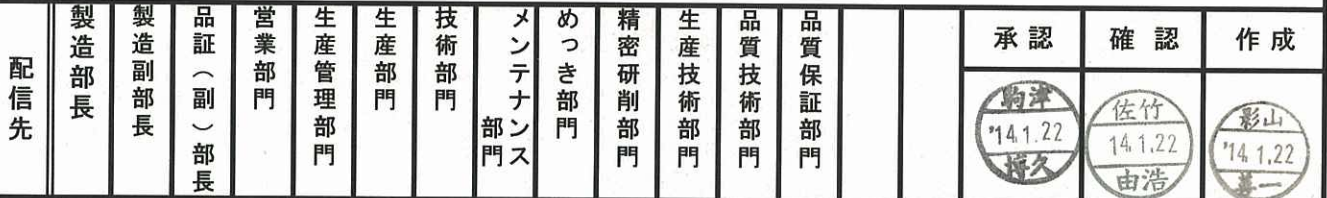 配信先
製造部長
製造副部長
品証（副）部長
営業部門
生産管理部門
生産部門
技術部門
メンテナンス
部門
めっき部門
精密研削部門
生産技術部門
品質技術部門
品質保証部門
承認
確認
作成
駒津
'14.1.22
博久
佐竹
14.1.22
由浩
影山
'14.1.22